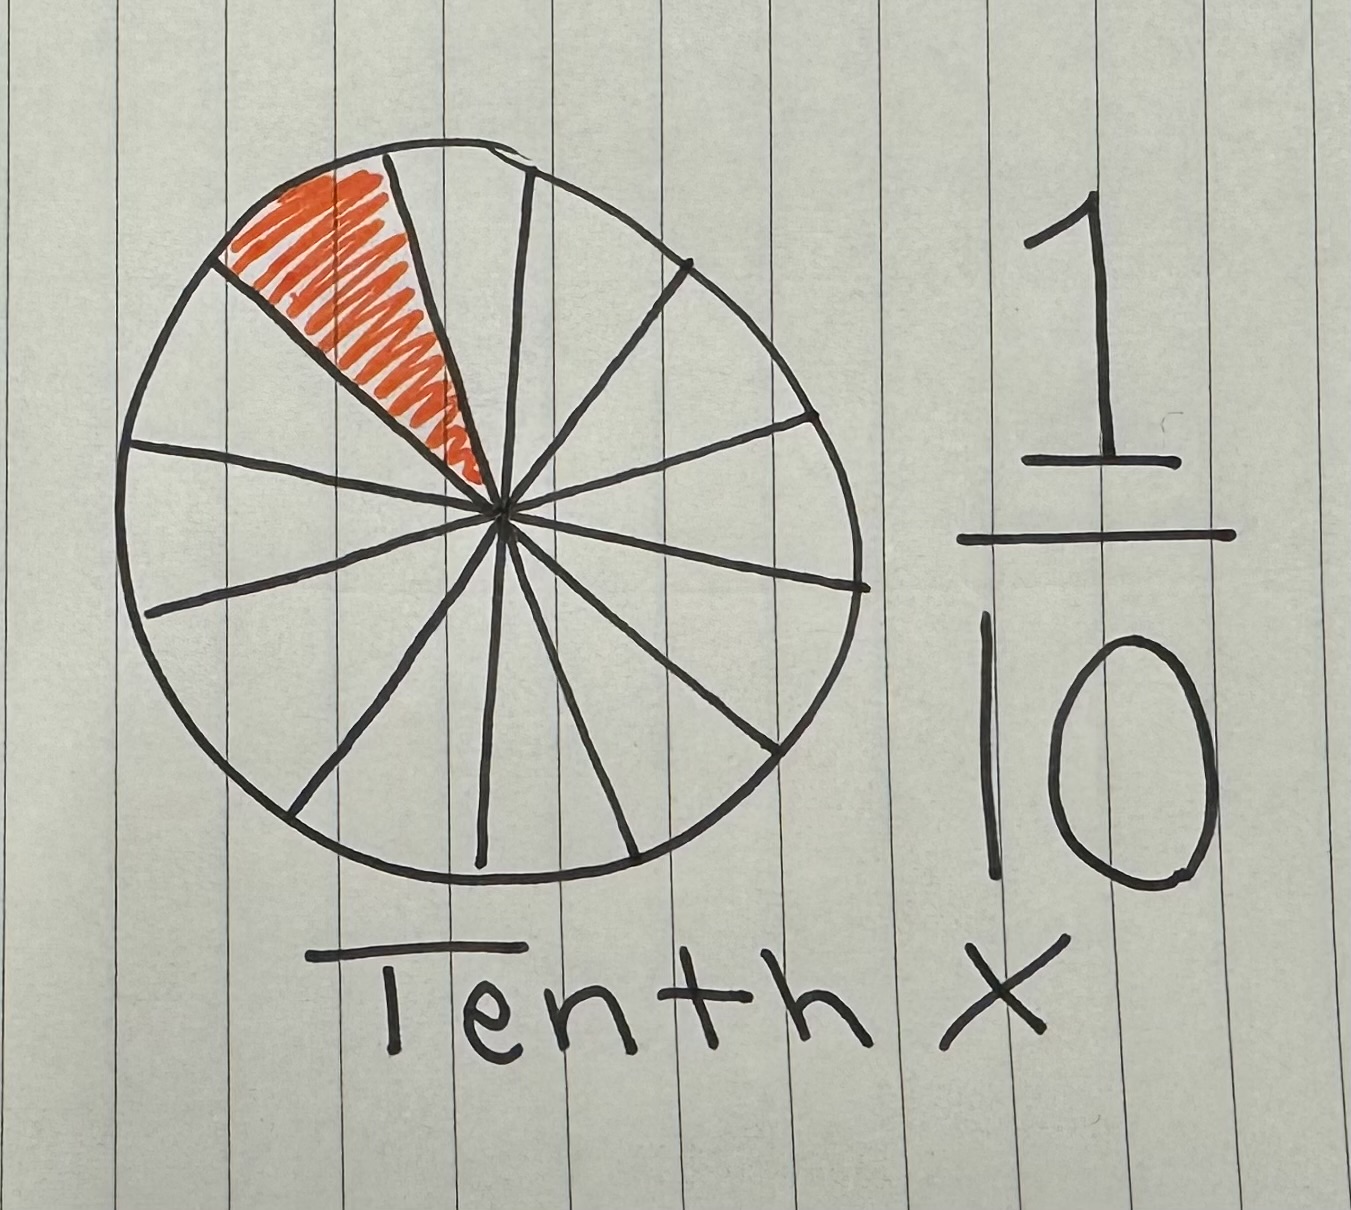 1
10
Tenth x